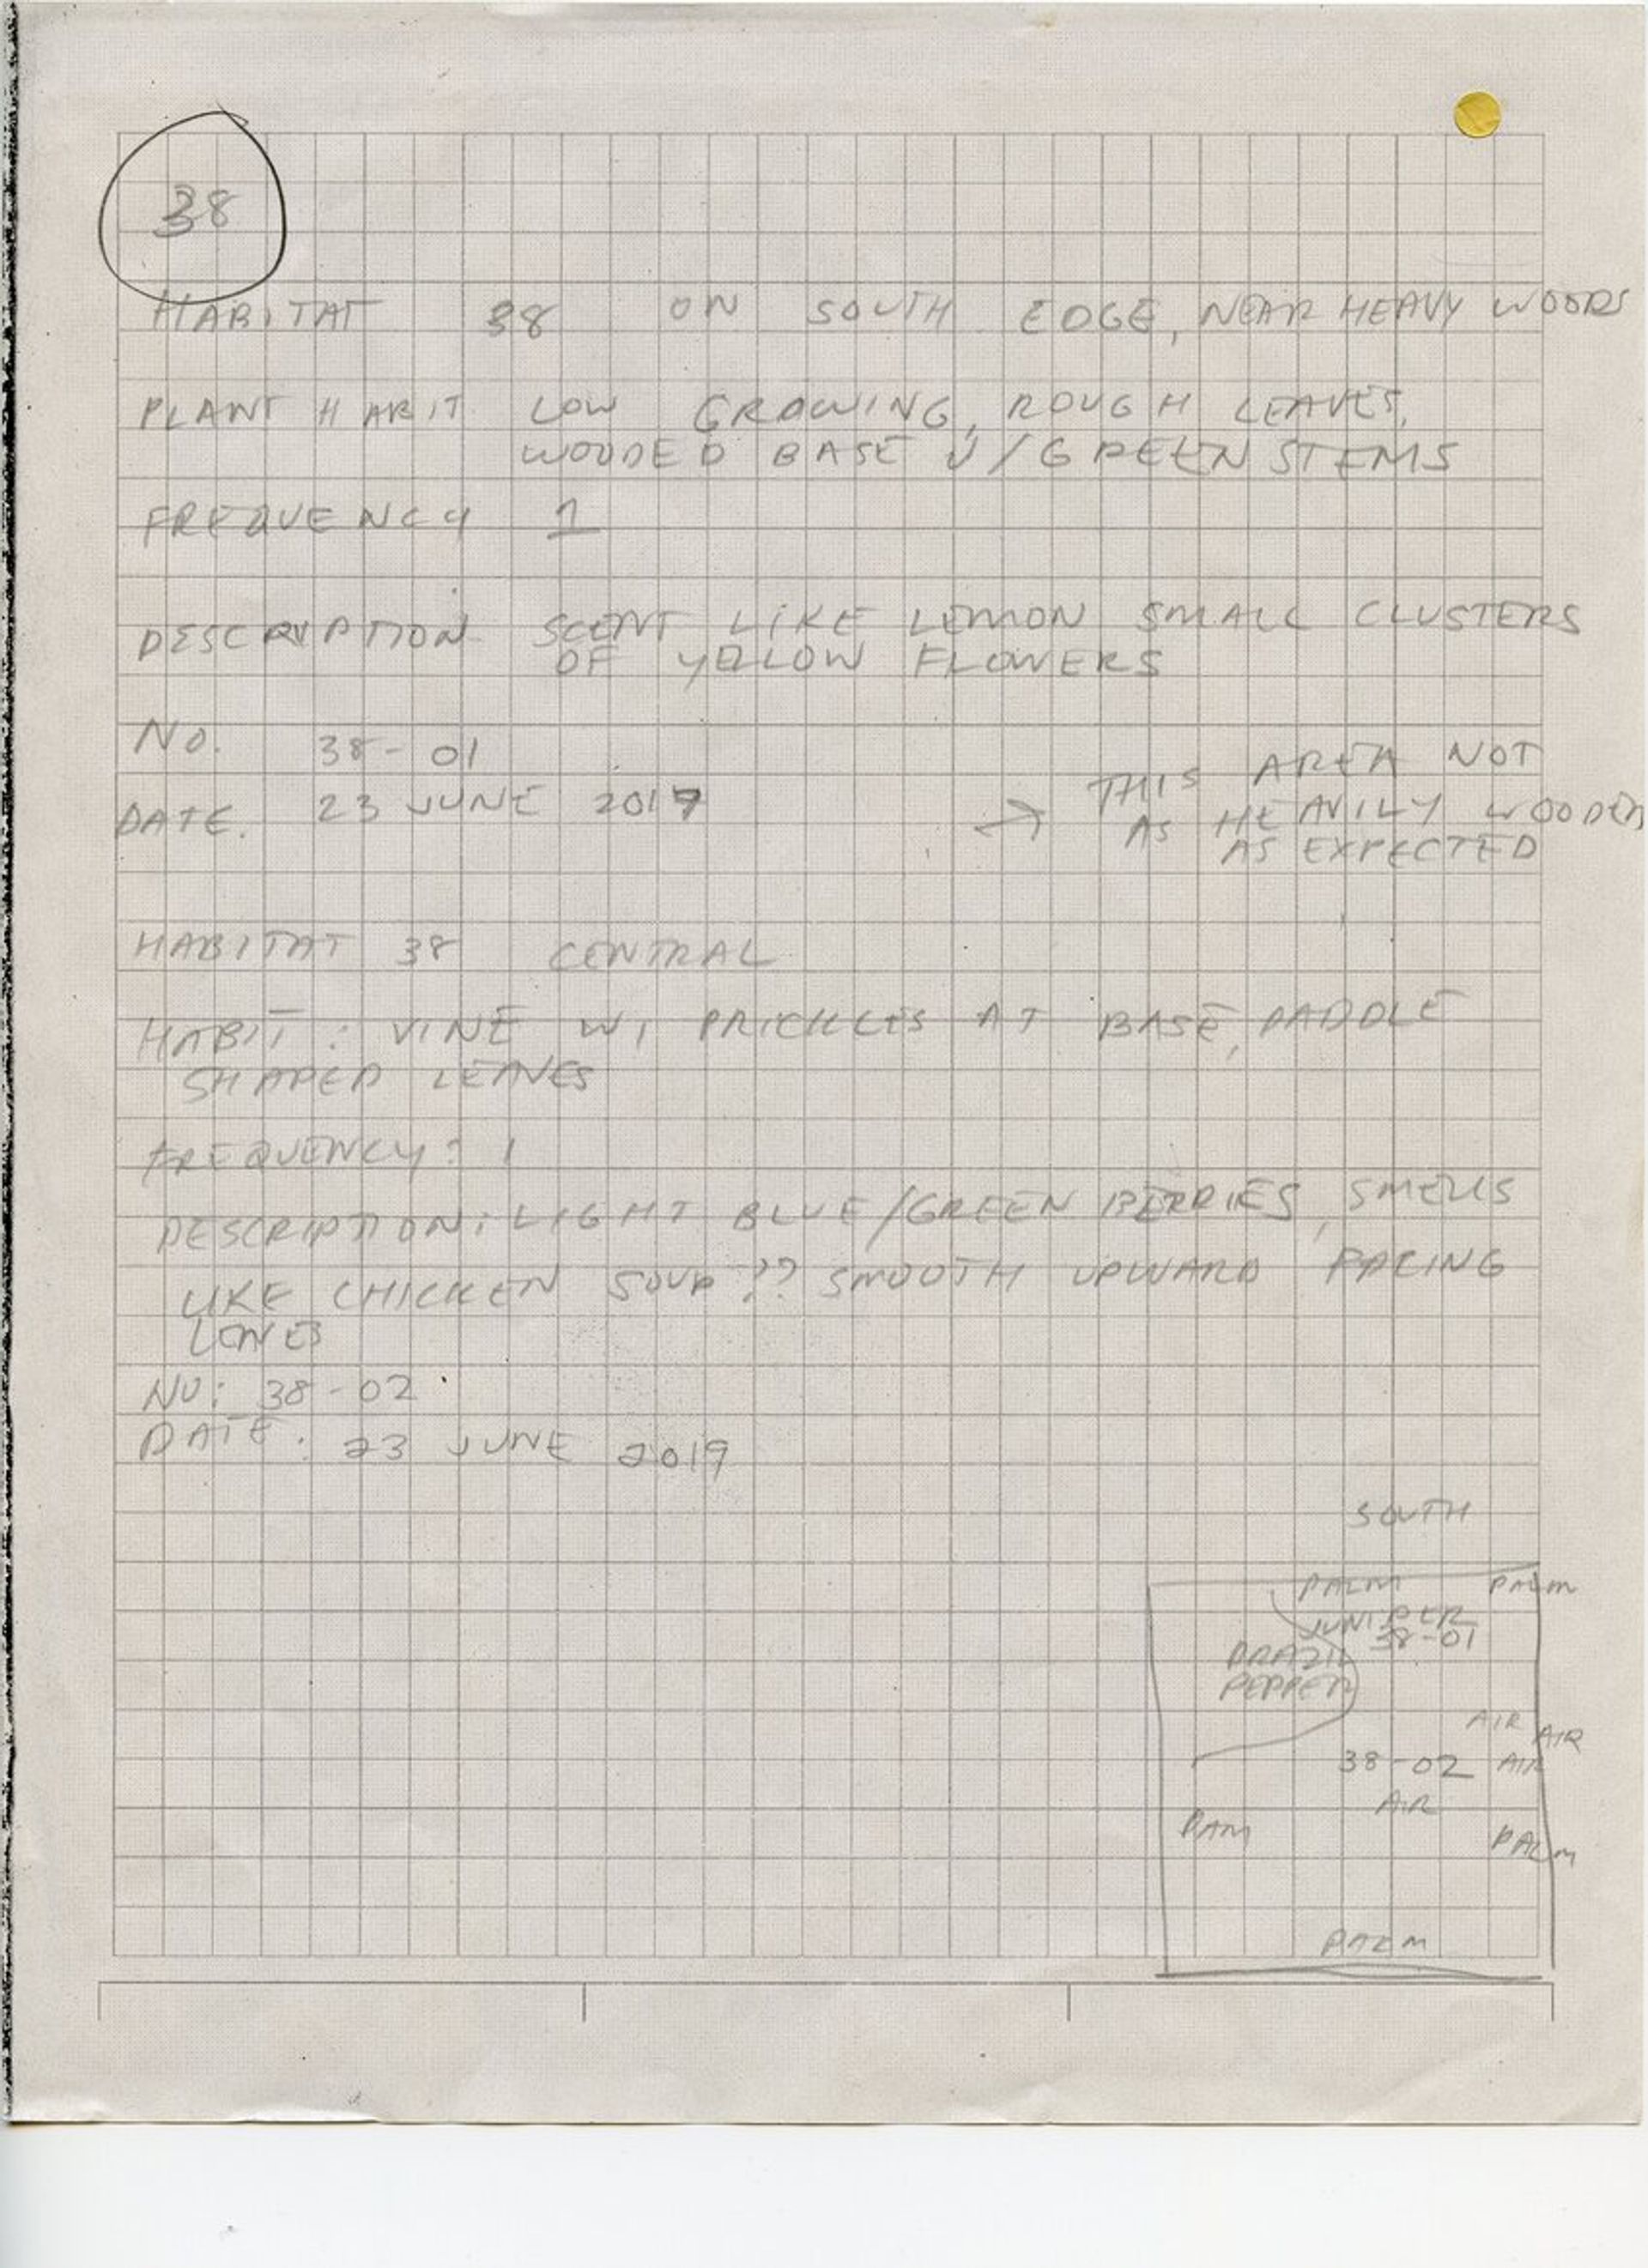 38
HABITAT 38 ON SOUTH EDGE, NEAR HEAVY WOODS
PLANT HABIT LOW GROWING, ROUGH LEAVES,
WOODED BASE W/GREEN STEMS
FREQUENCY 1
DESCRIPTION SCENT LIKE LEMON SMALL CLUSTERS
OF YELLOW FLOWERS
NO. 38-01
DATE. 23 JUNE 2019
→ THIS AREA NOT
AS HEAVILY WOODED
AS EXPECTED
HABITAT 38 CENTRAL
HABIT: VINE W/ PRICKLES AT BASE, PADDLE
SHAPED LEAVES
FREQUENCY: 1
DESCRIPTION: LIGHT BLUE/GREEN BERRIES, SMELLS
LIKE CHICKEN SOUP?? SMOOTH UPWARD FACING
NO: 38-02
DATE: 23 JUNE 2019
SOUTH
PALM PALM
JUNIPER
38-01
BRAZIL
PEPPER
AIR AIR
38-02 AIR
AIR
PAM PALM
PALM